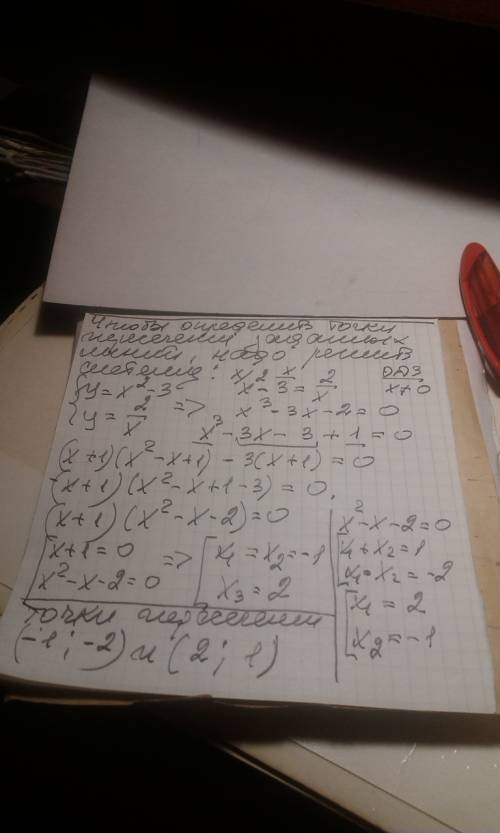 Чтобы определить точки
пересечения заданных
линий, надо решить
систему:
{y = x² - 3
y = 2/x
=>
x² - 3 = 2/x
ОДЗ
x ≠ 0
x³ - 3x - 2 = 0
x³ - 3x - 3 + 1 = 0
(x+1)(x² - x + 1) - 3(x+1) = 0
(x+1)(x² - x + 1 - 3) = 0
(x+1)(x² - x - 2) = 0
[x+1 = 0
x² - x - 2 = 0
=>
[x₁ = x₂ = -1
x₃ = 2
x² - x - 2 = 0
x₁ + x₂ = 1
x₁ · x₂ = -2
[x₁ = 2
x₂ = -1
Точки пересечения
(-1; -2) и (2; 1)